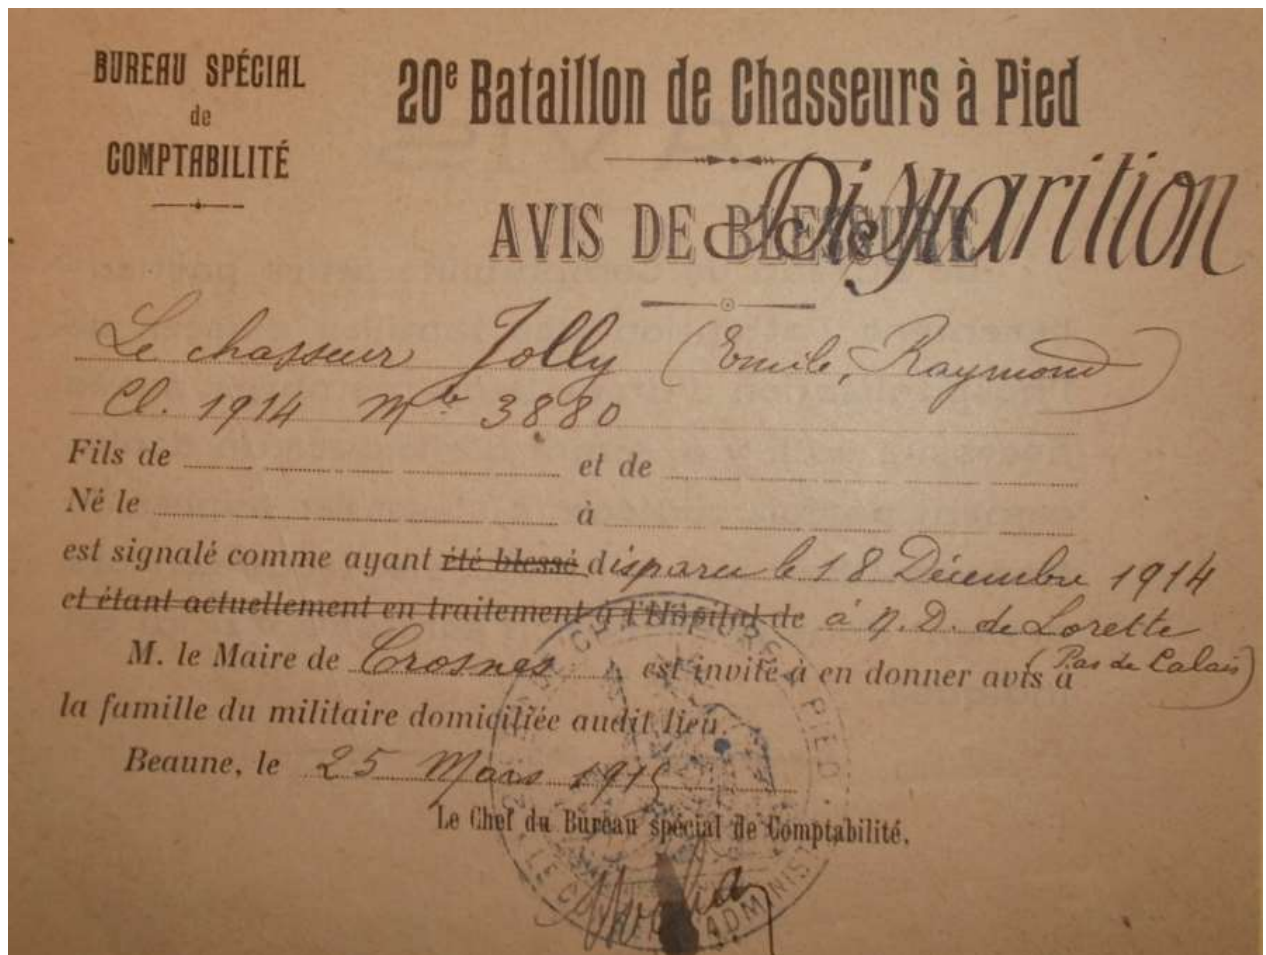 BUREAU SPÉCIAL
de
COMPTABILITÉ
20e Bataillon de Chasseurs à Pied
AVIS DE BLESSURE
Disparition
Le chasseur Jolly (Emile, Raymond)
Cl. 1914 Mle 3880
Fils de et de
Né le à
est signalé comme ayant été blessé disparu le 18 Décembre 1914
et étant actuellement en traitement à l'Hôpital de à N. D. de Lorette
(Pas de Calais)
M. le Maire de Crosnes est invité à en donner avis à
la famille du militaire domiciliée audit lieu.
Beaune, le 25 Mars 1915
Le Chef du Bureau spécial de Comptabilité,